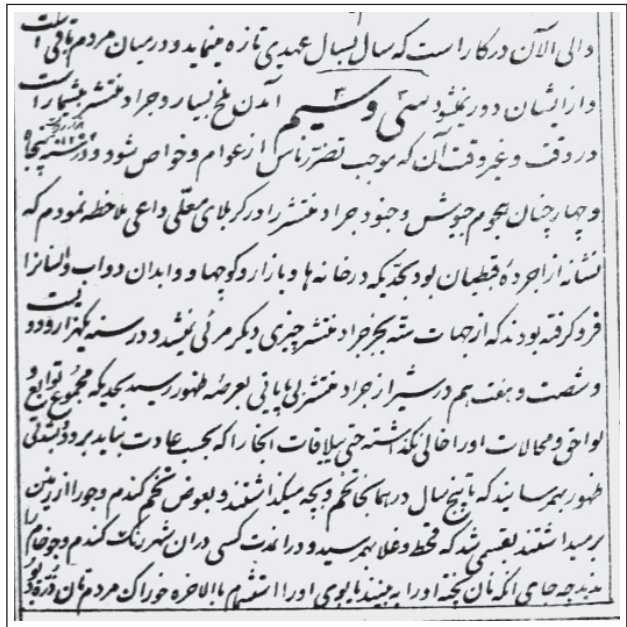 والی الآن در کار است که سال بسال عهدی تازه مینماید و در میان مردم باقی است
و از ایشان دور نمیشود سی و سیم آمدن ملخ بسیار و جراد منتشر بیشمار است
در وقت و غیر وقت آن که موجب تضرر ناس از عوام و خواص شود و در سنه پنجاه
و چهار چنان هجوم جیوش و جنود جراد منتشر را در کربلای معلی داعی ملاحظه نمودم که
نشانه از اجرده قبطیان بود بحدیکه در خانه ها و بازار و کوچها و ابدان دواب و انسانرا
فرو گرفته بودند که از جهات سته بجز جراد منتشر چیزی دیگر مرئی نمیشد و در سنه یکهزار و دویست
و شصت و هفت هم در شیراز جراد منتشر بی پایانی بعرصه ظهور رسید بحدیکه مجموع توابع و
لواحق و محالات او را خالی نگذاشته حتی ییلاقات انجا را که بحسب عادت نباید برود بشدتی
ظهور بهم رسانید که تا پنج سال در همانجا تخم و بچه میگذاشتند و بعوض تخم گندم و جو را از زمین
بر میداشتند بقسمی شد که قحط و غلا بهم رسید و در اندت کسی در ان شهر رنگ گندم و جو خام را
ندید چه جای انکه نان پخته او را به بینند یا بوی او را استشمام بالاخره خوراک مردم نان ذرة بود